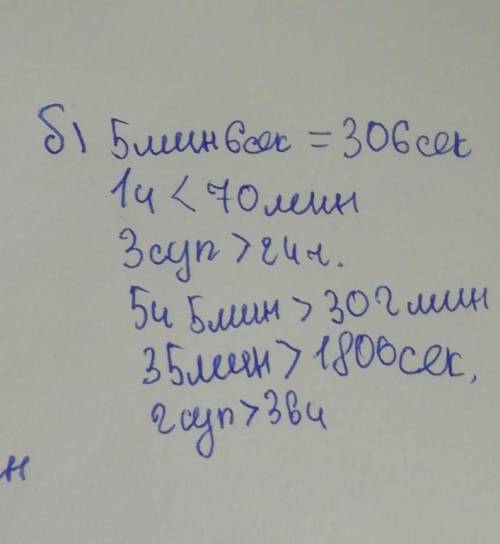 б) 5мин 6сек = 306сек
1ч < 70мин
3сут > 24ч.
5ч 5мин > 302мин
35мин > 1800сек,
2сут > 36ч
н